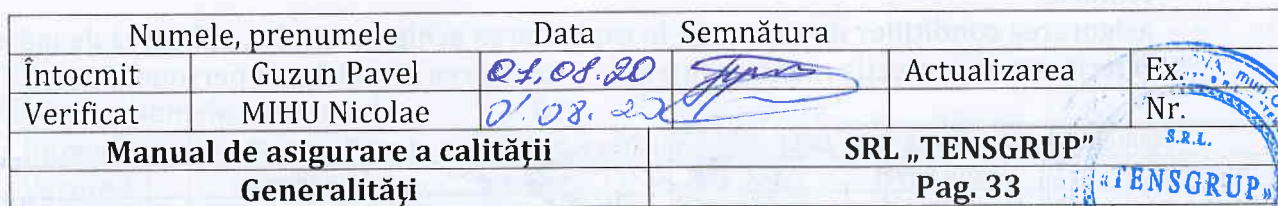 Numele, prenumele Data Semnătura
Întocmit Guzun Pavel 01.08.20 Actualizarea Ex.
Verificat MIHU Nicolae 01.08.20 Nr.
Manual de asigurare a calității SRL „TENSGRUP”
Generalități Pag. 33
mun.
S.R.L.
«TENSGRUP»